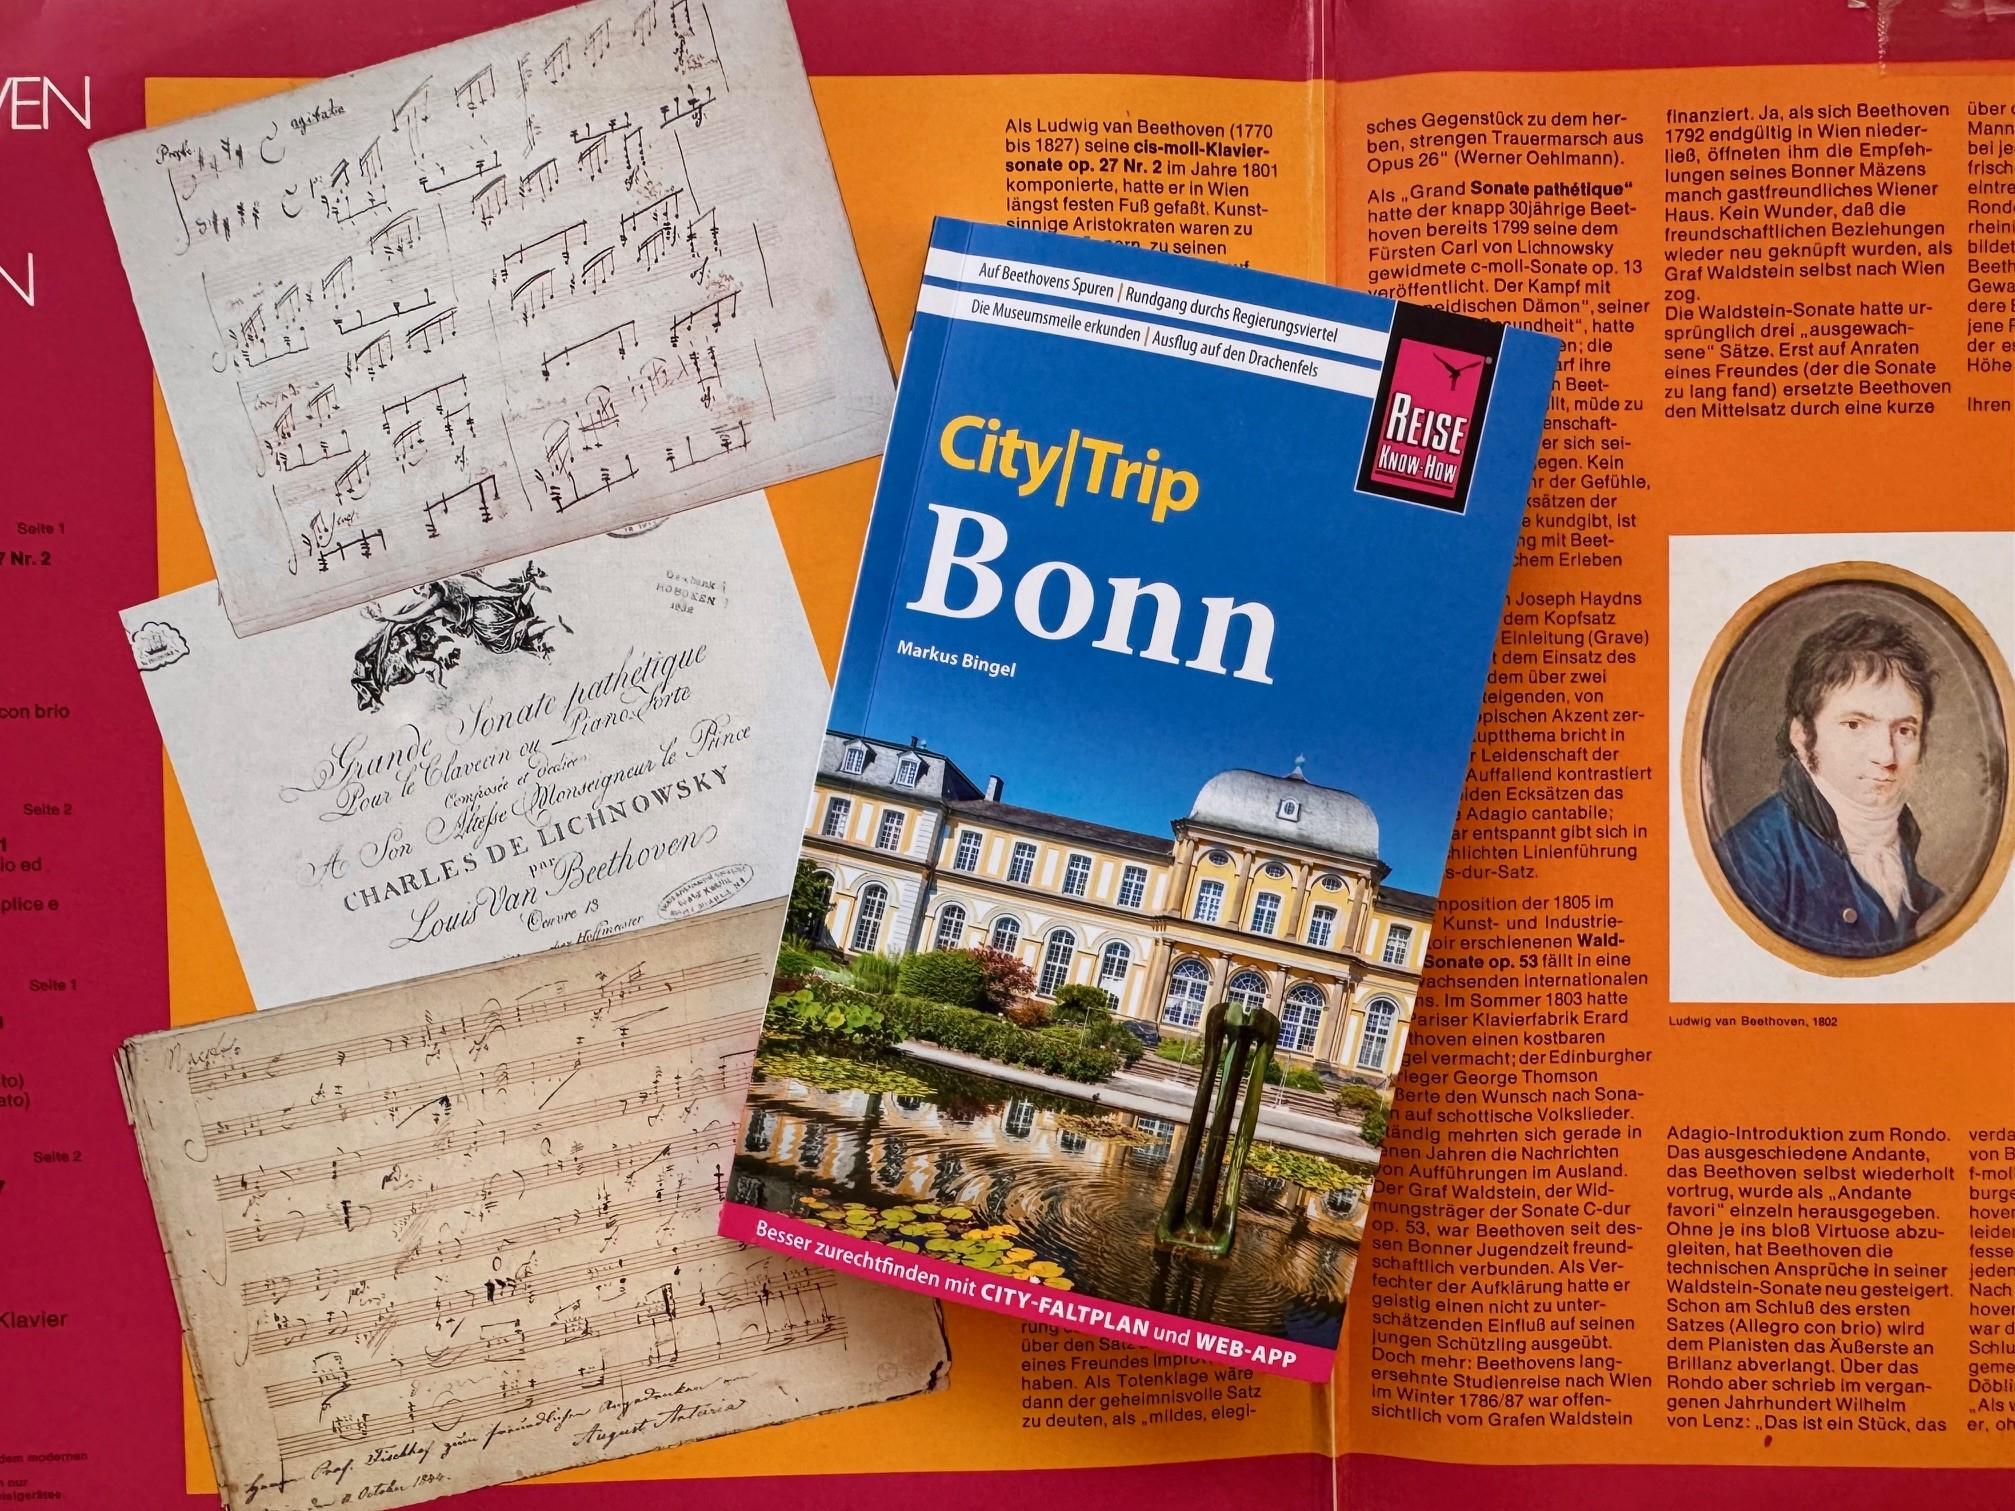 VEN
N
Seite 1
7 Nr. 2
con brio
Seite 2
1
io ed
plice e
Seite 1
to)
ato)
Seite 2
7
Klavier
dem modernen
n nur
Presto
agitato
Geschenk
HOBOKEN
Grande Sonate pathétique
Pour le Clavecin ou Piano-Forte
Composée et dediée
A Son Altesse Monseigneur le Prince
CHARLES DE LICHNOWSKY
par
Louis Van Beethoven
Oeuvre 13
chez Hoffmeister
Herrn Prof. Fischhof zum freundlichen Angedenken
August Artaria
October
Auf Beethovens Spuren | Rundgang durchs Regierungsviertel
Die Museumsmeile erkunden | Ausflug auf den Drachenfels
REISE
KNOW-HOW
City|Trip
Bonn
Markus Bingel
Besser zurechtfinden mit CITY-FALTPLAN und WEB-APP
Als Ludwig van Beethoven (1770
bis 1827) seine cis-moll-Klavier-
sonate op. 27 Nr. 2 im Jahre 1801
komponierte, hatte er in Wien
längst festen Fuß gefaßt. Kunst-
sinnige Aristokraten waren zu
zu seinen
über den Satz
eines Freundes
haben. Als Totenklage wäre
dann der geheimnisvolle Satz
zu deuten, als „mildes, elegi-
sches Gegenstück zu dem her-
ben, strengen Trauermarsch aus
Opus 26“ (Werner Oehlmann).
Als „Grand Sonate pathétique“
hatte der knapp 30jährige Beet-
hoven bereits 1799 seine dem
Fürsten Carl von Lichnowsky
gewidmete c-moll-Sonate op. 13
veröffentlicht. Der Kampf mit
neidischen Dämon“, seiner
sundheit“, hatte
en; die
arf ihre
n Beet-
llt, müde zu
enschaft-
er sich sei-
egen. Kein
hr der Gefühle,
ksätzen der
e kundgibt, ist
ng mit Beet-
chem Erleben
Joseph Haydns
dem Kopfsatz
Einleitung (Grave)
t dem Einsatz des
dem über zwei
teigenden, von
pischen Akzent zer-
uptthema bricht in
r Leidenschaft der
Auffallend kontrastiert
iden Ecksätzen das
Adagio cantabile;
ar entspannt gibt sich in
chlichten Linienführung
s-dur-Satz.
mposition der 1805 im
Kunst- und Industrie-
oir erschienenen Wald-
Sonate op. 53 fällt in eine
wachsenden internationalen
ns. Im Sommer 1803 hatte
Pariser Klavierfabrik Erard
thoven einen kostbaren
gel vermacht; der Edinburgher
rleger George Thomson
ßerte den Wunsch nach Sona-
n auf schottische Volkslieder.
tändig mehrten sich gerade in
enen Jahren die Nachrichten
on Aufführungen im Ausland.
Der Graf Waldstein, der Wid-
mungsträger der Sonate C-dur
op. 53, war Beethoven seit des-
sen Bonner Jugendzeit freund-
schaftlich verbunden. Als Ver-
fechter der Aufklärung hatte er
geistig einen nicht zu unter-
schätzenden Einfluß auf seinen
jungen Schützling ausgeübt.
Doch mehr: Beethovens lang-
ersehnte Studienreise nach Wien
im Winter 1786/87 war offen-
sichtlich vom Grafen Waldstein
finanziert. Ja, als sich Beethoven
1792 endgültig in Wien nieder-
ließ, öffneten ihm die Empfeh-
lungen seines Bonner Mäzens
manch gastfreundliches Wiener
Haus. Kein Wunder, daß die
freundschaftlichen Beziehungen
wieder neu geknüpft wurden, als
Graf Waldstein selbst nach Wien
zog.
Die Waldstein-Sonate hatte ur-
sprünglich drei „ausgewach-
sene“ Sätze. Erst auf Anraten
eines Freundes (der die Sonate
zu lang fand) ersetzte Beethoven
den Mittelsatz durch eine kurze
Ludwig van Beethoven, 1802
Adagio-Introduktion zum Rondo.
Das ausgeschiedene Andante,
das Beethoven selbst wiederholt
vortrug, wurde als „Andante
favori“ einzeln herausgegeben.
Ohne je ins bloß Virtuose abzu-
gleiten, hat Beethoven die
technischen Ansprüche in seiner
Waldstein-Sonate neu gesteigert.
Schon am Schluß des ersten
Satzes (Allegro con brio) wird
dem Pianisten das Äußerste an
Brillanz abverlangt. Über das
Rohdo aber schrieb im vergan-
genen Jahrhundert Wilhelm
von Lenz: „Das ist ein Stück, das
über
Mann
bei je
frisch
eintre
Rond
rheini
bildet
Beeth
Gewa
dere
jene
der es
Höhe
Ihren
verda
von B
f-mol
burge
hover
leider
fesse
jeden
Nach
hover
war d
Schlu
geme
Döbli
„Als
er, oh